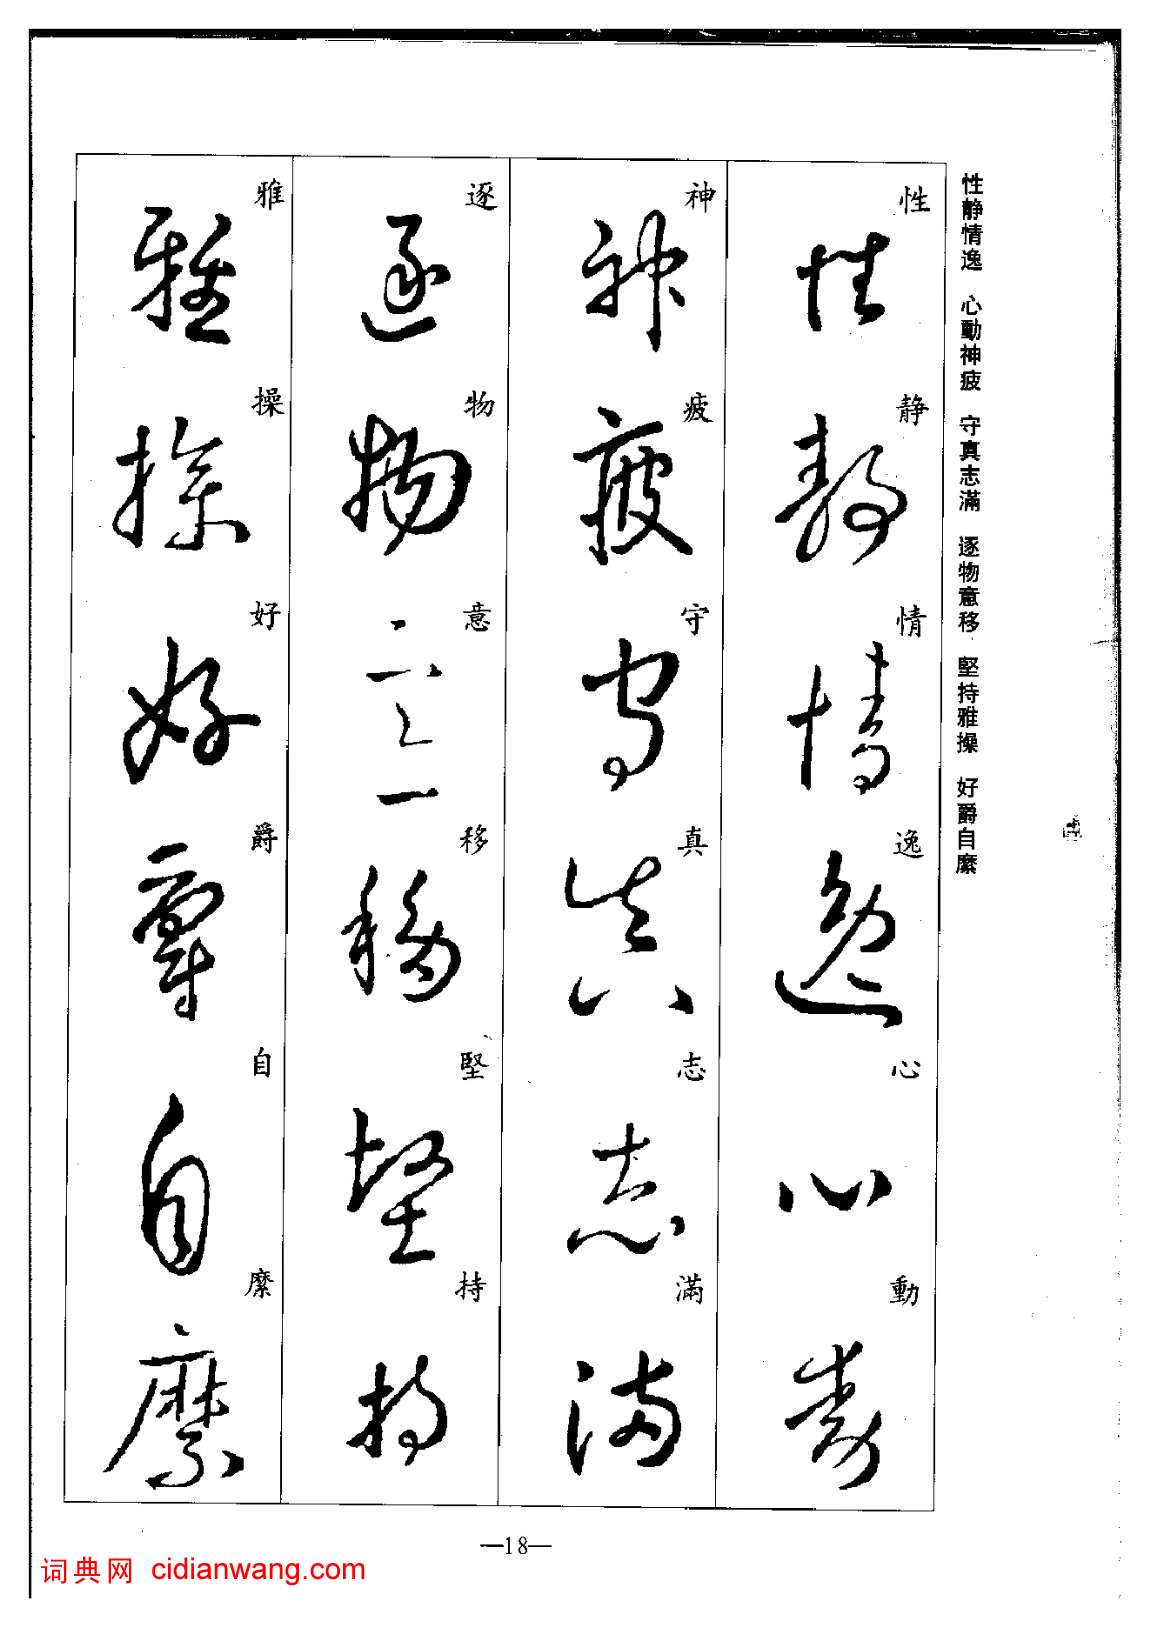 性静情逸 心動神疲 守真志滿 逐物意移 堅持雅操 好爵自縻
性静情逸心動
神疲守真志滿
逐物意移堅持
雅操好爵自縻
—18—
词典网 cidianwang.com